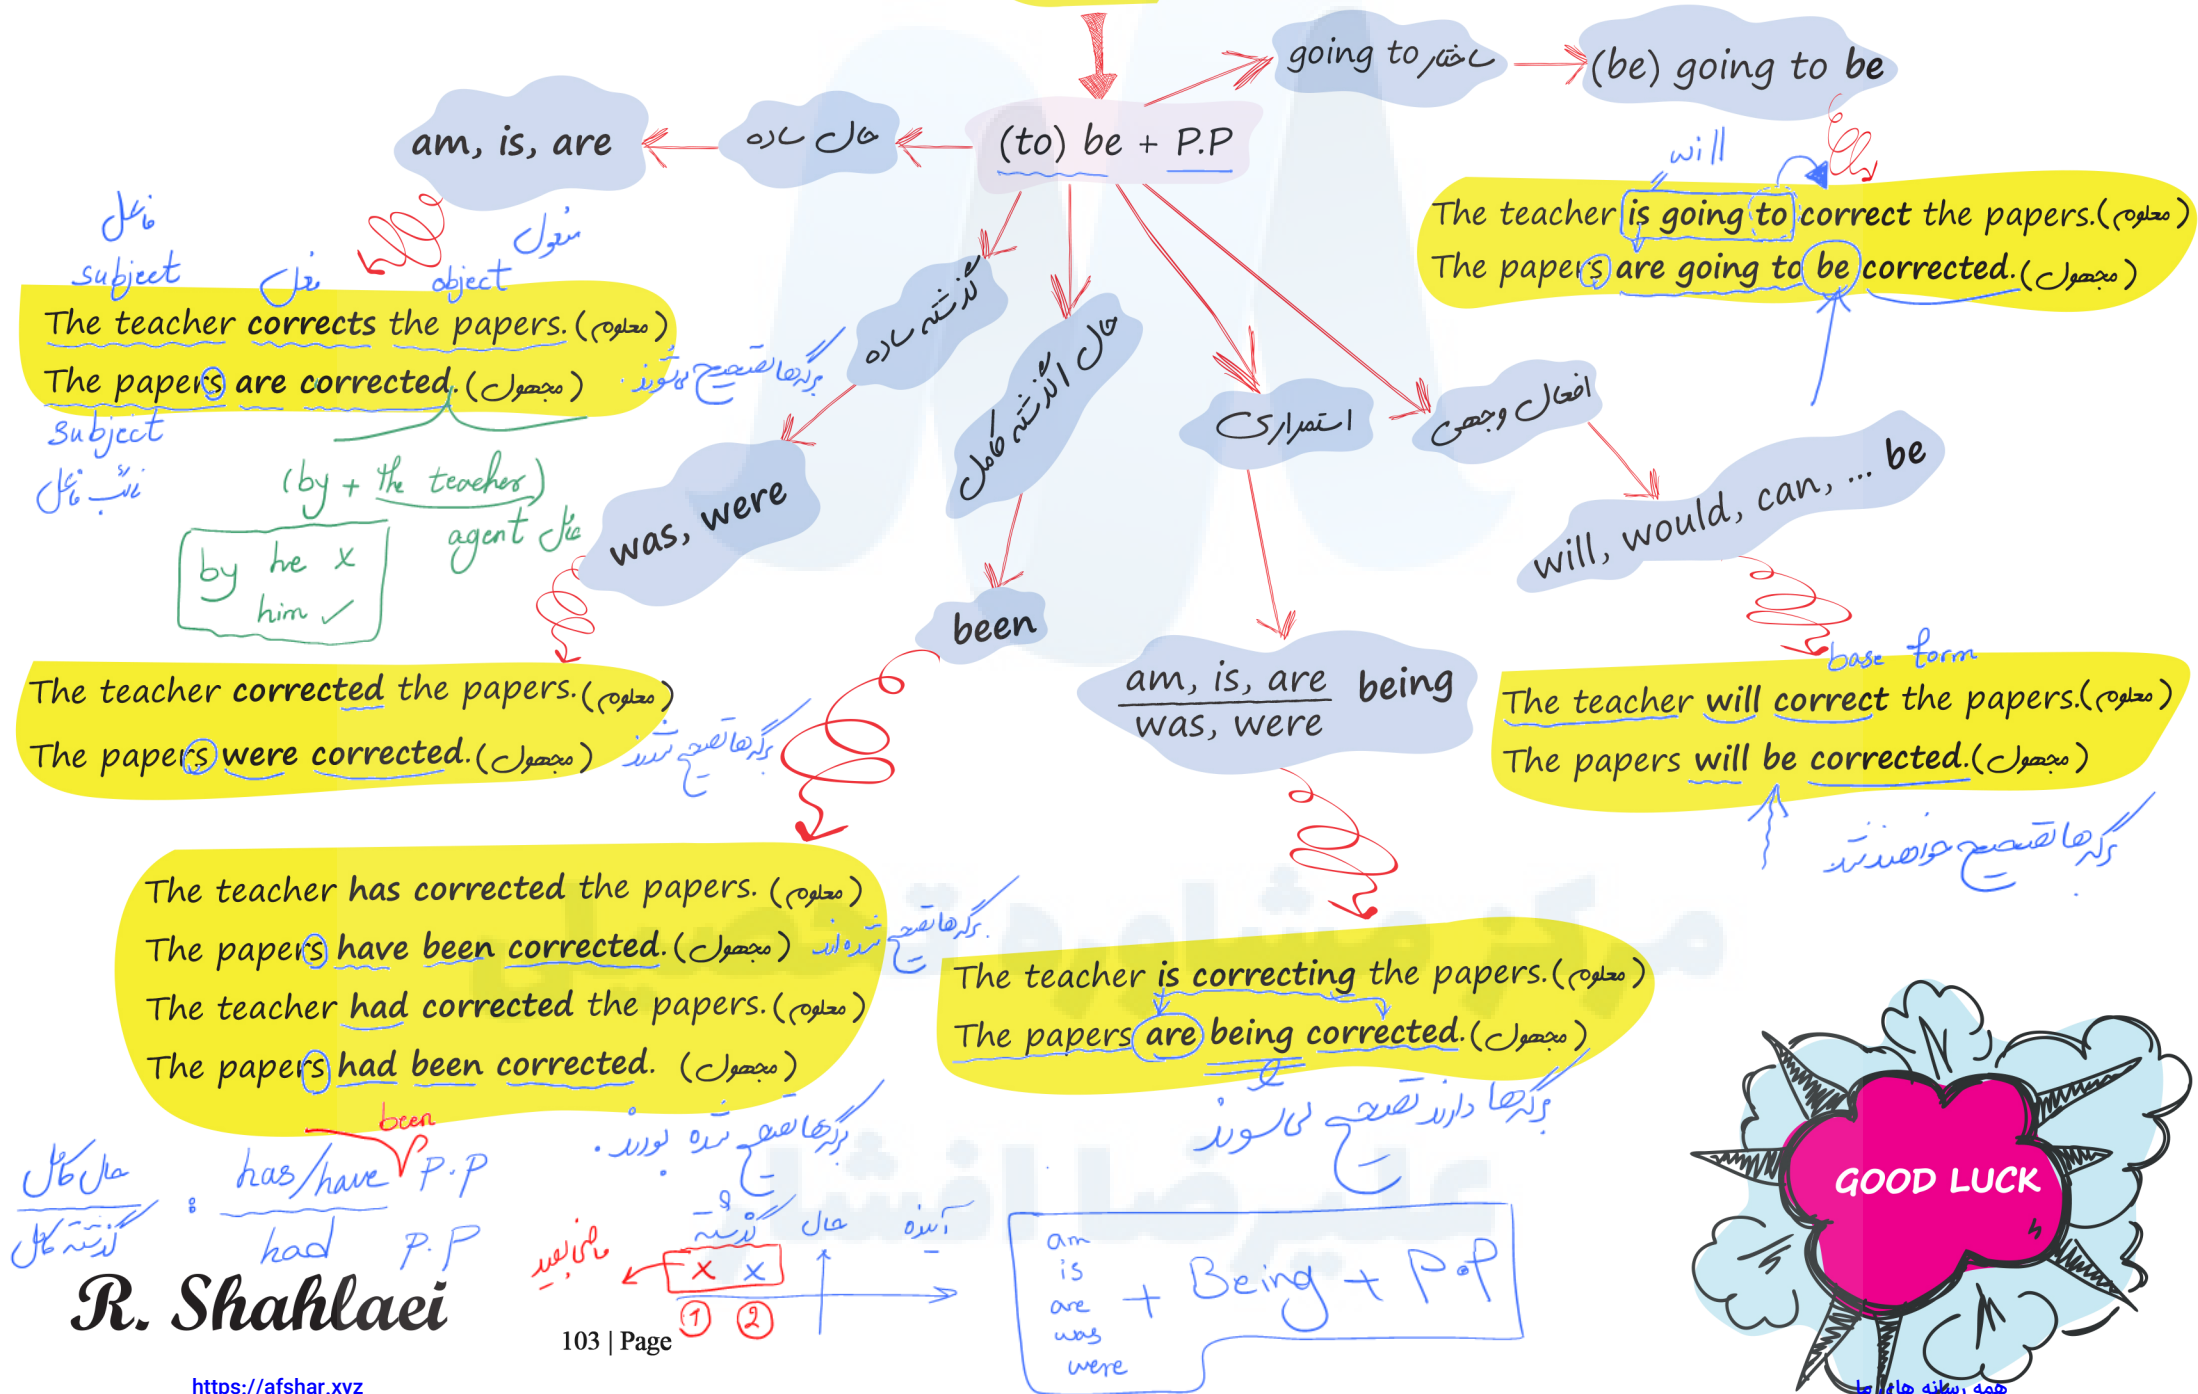 going to ساختار
(be) going to be
am, is, are
حال ساده
(to) be + P.P
will
The teacher is going to correct the papers.(معلوم)
The papers are going to be corrected.(مجهول)
فاعل
فعل
مفعول
subject
object
The teacher corrects the papers.(معلوم)
The papers are corrected.(مجهول)
برگه‌ها تصحیح می‌شوند.
subject
نائب فاعل
(by + the teacher)
agent عامل
by he x
him ✓
گذشته ساده
حال / گذشته کامل
استمراری
افعال وجهی
was, were
been
am, is, are
was, were
being
will, would, can, ... be
The teacher corrected the papers.(معلوم)
The papers were corrected.(مجهول)
برگه‌ها تصحیح شدند
base form
The teacher will correct the papers.(معلوم)
The papers will be corrected.(مجهول)
برگه‌ها تصحیح خواهند شد.
The teacher has corrected the papers.(معلوم)
The papers have been corrected.(مجهول)
برگه‌ها تصحیح شده‌اند.
The teacher had corrected the papers.(معلوم)
The papers had been corrected. (مجهول)
برگه‌ها تصحیح شده بودند.
The teacher is correcting the papers.(معلوم)
The papers are being corrected.(مجهول)
برگه‌ها دارند تصحیح می‌شوند
been
حال کامل : has/have P.P
گذشته کامل had P.P
ماضی بعید
گذشته
حال
آینده
x x
1 2
am
is
are
was
were
+ Being + P.P
مرکز مشاوره تحصیلی
علیرضا افشار
GOOD LUCK
R. Shahlaei
103 | Page
https://afshar.xyz
همه رسانه های ما